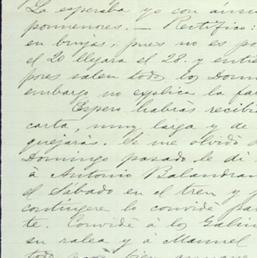 La esperaba yo con ansia
pormenores. — Rectifico:
en brujas, pues no es po
el 20 llegara el 28. y entre
pores salen todos los Domi
embargo no explica la fa
Espero habrás recibi
carta, muy larga y de
quejarás. Se me olvidó
Domingo pasado le di
á Antonio Balandra
el Sábado en el tren y
contingere lo convidé pa
te. Convidé á los Galin
su ralea y á Manuel